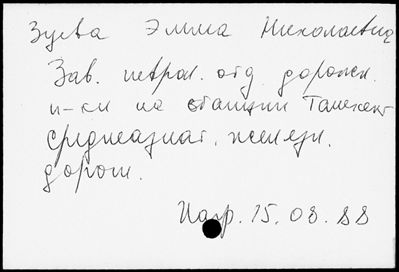 Зуева Эмма Николаевна
Зав. неврол. отд. дорожн.
п-ки на станции Ташкент
Среднеазиат. железн.
дорог.
Награ. 15.08.88